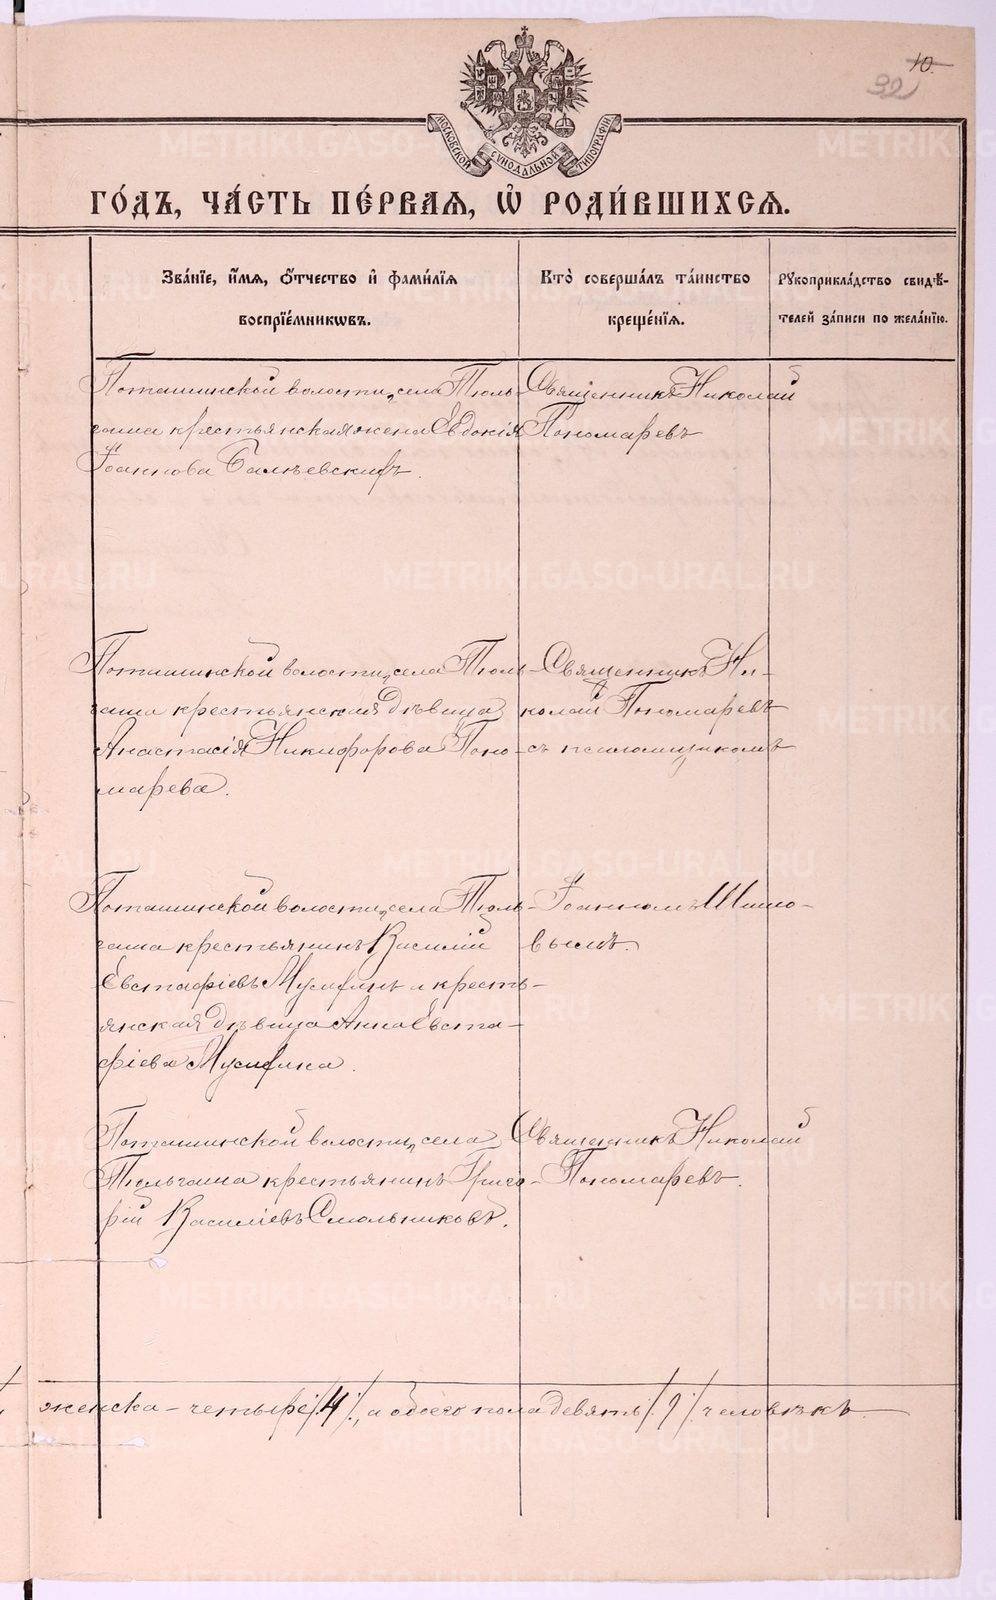 10.
32
МОСКОВСКОЙ СѴНОДАЛЬНОЙ ТИПОГРАФІИ
ГО́ДЪ, ЧА́СТЬ ПЕ́РВАЯ, Ѽ РОДИ́ВШИХСЯ.
Зва́нїе, и҆́мѧ, ѻ҆́тчество и҆ фами́лїѧ
воспрїе́мникѡвъ.
Кто̀ соверша́лъ та́инство
креще́нїѧ.
Рꙋкоприкла́дство свидѣ́-
телей за́писи по жела́нїю.
Поташинской волости, села Тюль-
гаша крестьянская жена Евдокія
Іоаннова
Священникъ Николай
Пономаревъ
Поташинской волости, села Тюль-
гаша крестьянская дѣвица
Анастасія Никифорова Поно-
марева.
Священникъ Ни-
колай Пономаревъ
съ псаломщикомъ
Поташинской волости, села Тюль-
гаша крестьянинъ Василій
Евстафіевъ Мусихинъ и кресть-
янская дѣвица Анна Евста-
фіева Мусихина.
Іоанномъ Шишо-
вымъ.
Поташинской волости, села
Тюльгаша крестьянинъ Григо-
рій Василіевъ Смольниковъ.
Священникъ Николай
Пономаревъ.
женска - четыре /4/, а обоего пола девять /9/ человѣкъ.
METRIKI.GASO-URAL.RU